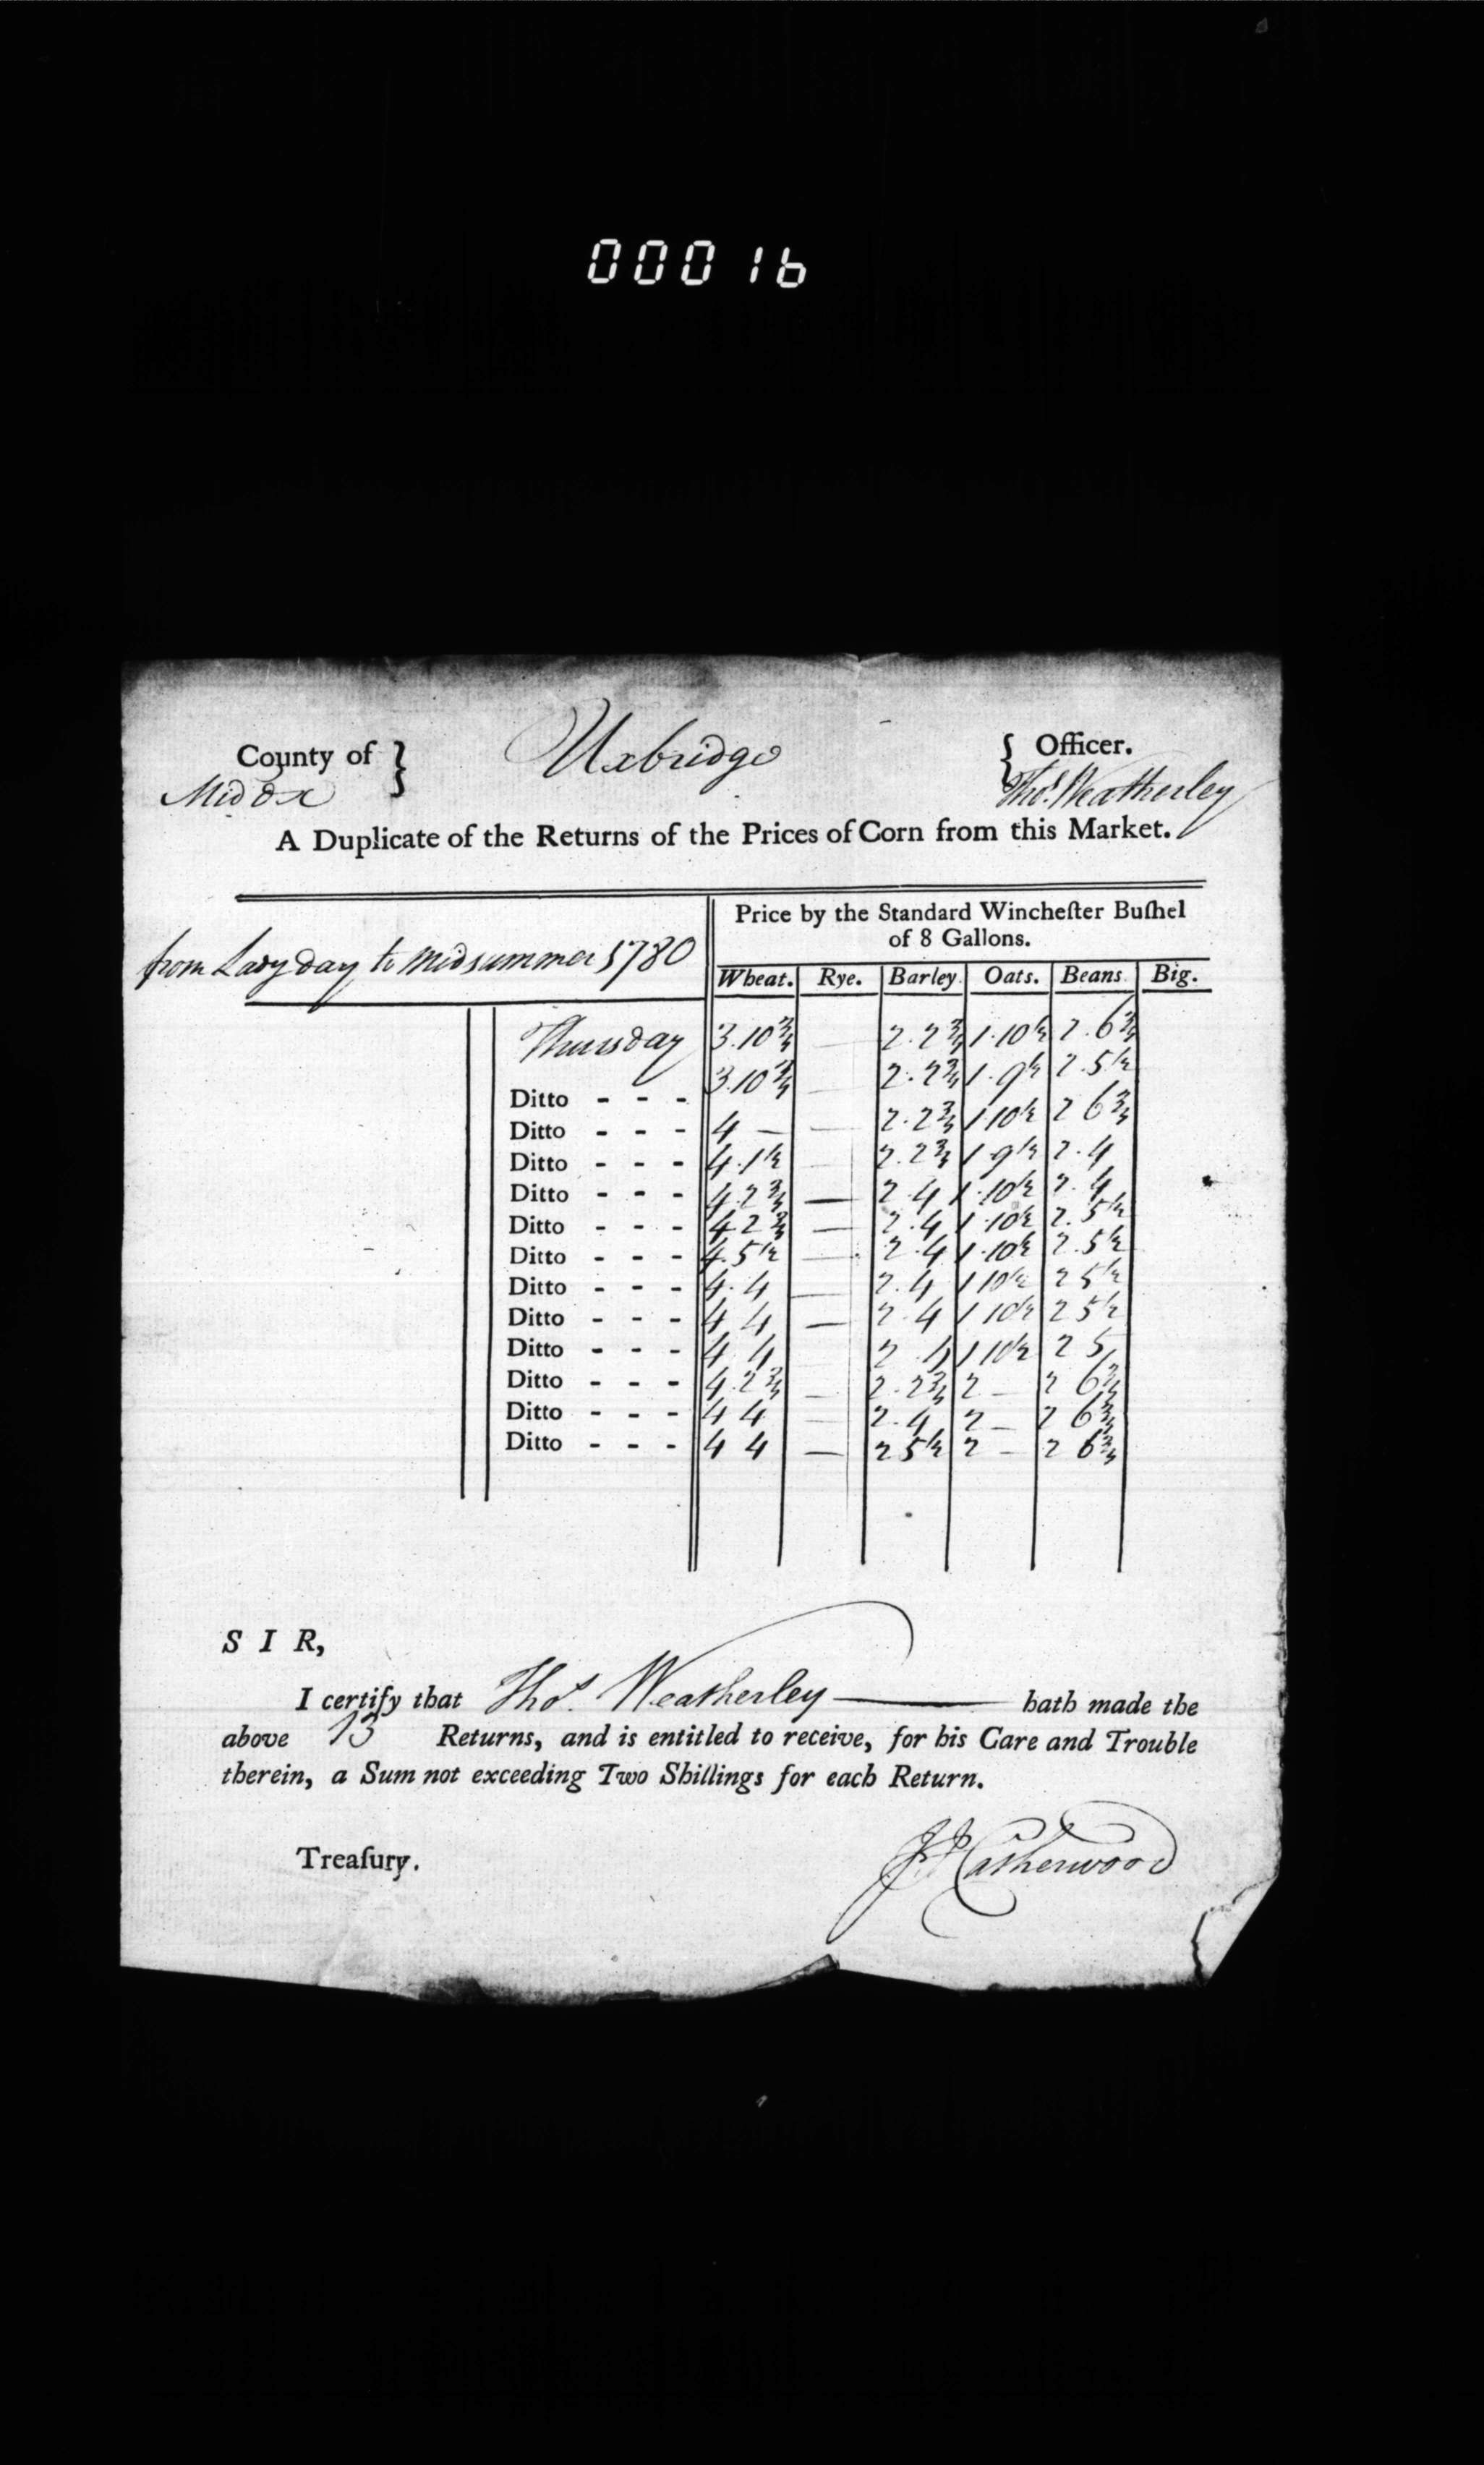 000016
County of } Uxbridge { Officer.
Middx Thos. Weatherley
A Duplicate of the Returns of the Prices of Corn from this Market.
Price by the Standard Wincheſter Buſhel
of 8 Gallons.
from Lady day to Midsummer 1780
Wheat. Rye. Barley Oats. Beans Big.
Thursday 3.10¾ — 2.2¾ 1.10½ 2.6¾
Ditto - - - 3.10¾ — 2.2¾ 1.9½ 2.5½
Ditto - - - 4 — — 2.2¾ 1.10½ 2 6¾
Ditto - - - 4.1½ — 2.2¾ 1.9½ 2.4
Ditto - - - 4.2¾ — 2.4 1.10½ 2.4
Ditto - - - 4.2¾ — 2.4 1.10½ 2.5½
Ditto - - - 4.5½ — 2.4 1.10½ 2.5½
Ditto - - - 4.4 — 2.4 1 10½ 2 5½
Ditto - - - 4 4 — 2.4 1 10½ 2 5½
Ditto - - - 4.4 — 2.4 1 10½ 2 5
Ditto - - - 4.2¾ — 2.2¾ 2 — 2 6¾
Ditto - - - 4 4 — 2.4 2 — 2 6¾
Ditto - - - 4 4 — 2 5½ 2 — 2 6¾
S I R,
I certify that Thos. Weatherley — hath made the
above 13 Returns, and is entitled to receive, for his Care and Trouble
therein, a Sum not exceeding Two Shillings for each Return.
Treaſury. JJ Catherwood